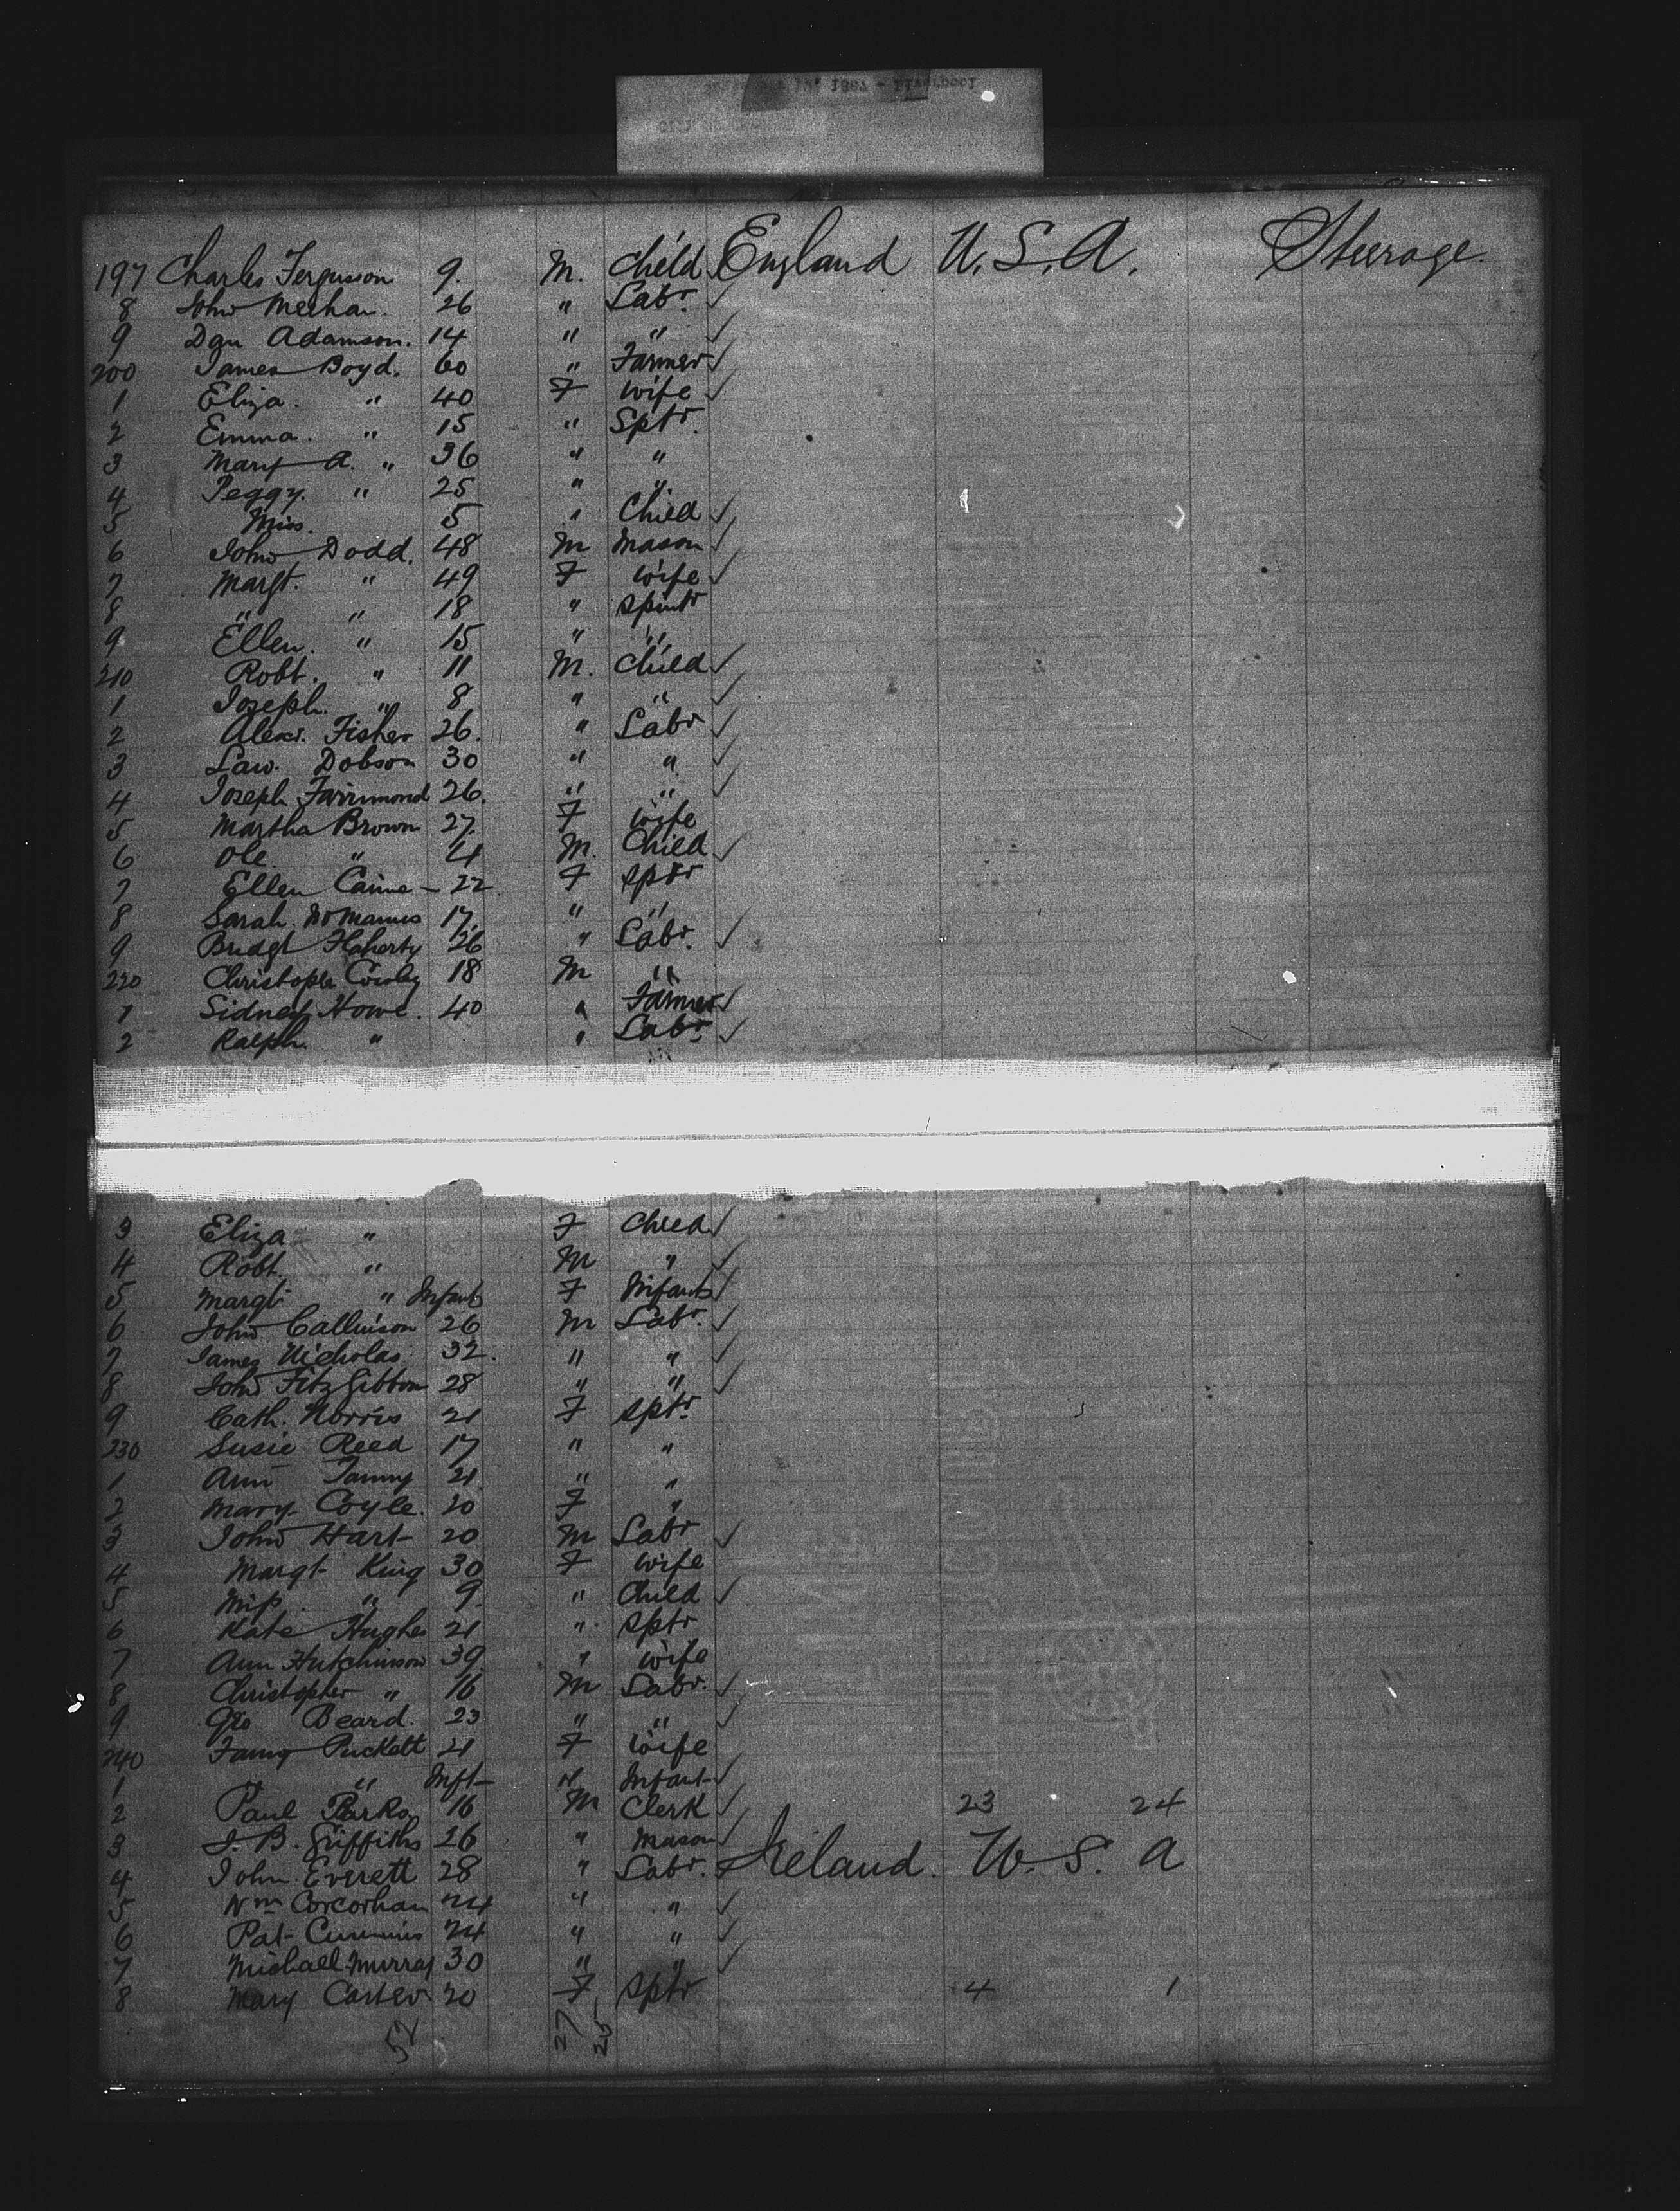 1887 - Liverpool
197 Charles Fergusson 9. M. Child England U.S.A. Steerage.
8 John Meehan. 26 " Labr.
9 Dan Adamson. 14 " "
200 James Boyd. 60 " Farmer
1 Eliza. " 40 F wife
2 Emma. " 15 " Sptr.
3 Mary A. " 36 " "
4 Peggy. " 25 " "
5 Miss. 5 " Child
6 John Dodd. 48 M Mason
7 Margt. " 49 F wife
8 " " 18 " spintr
9 Ellen. " 15 " "
210 Robt. " 11 M. Child
1 Joseph. " 8 " "
2 Alexr. Fisher 26. " Labr
3 Law. Dobson 30 " "
4 Joseph Farrimond 26. " "
5 Martha Brown 27. F wife
6 Ole. " 4 M. Child
7 Ellen Caine - 22 F sptr
8 Sarah McManus 17. " "
9 Bridgt Flaherty 26 " Labr.
220 Christopher 18 M "
1 Sidney Howe. 40 " Farmer
2 Ralph. " " Labr.
3 Eliza " F Child
4 Robt. " M "
5 Margt " Infant F Infant
6 John Callinson 26 M Labr.
7 James Nicholas 32. " "
8 John FitzGibbon 28 " "
9 Cath. Norris 21 F sptr.
230 Susie Reed 17 " "
1 Ann 21 " "
2 Mary Coyle. 20 F "
3 John Hart 20 M Labr
4 Margt King 30 F wife
5 Miss. " 9. " Child
6 Kate Hughes 21 " sptr
7 Ann Hutchinson 39. " wife
8 Christopher " 16 M Labr.
9 Geo Beard. 23 " "
240 Fanny Puckett 21 F wife
1 " " Inft " Infant
2 Paul Parks 16 M Clerk 23 24
3 J. B. Griffiths 26 " Mason
4 John Everett 28 " Labr. Ireland. U. S. A
5 Wm Corcorhan 24 " "
6 Pat Cummins 24 " "
7 Michael Murray 30 " "
8 Mary Carter 20 F sptr 4 1
52 27 25